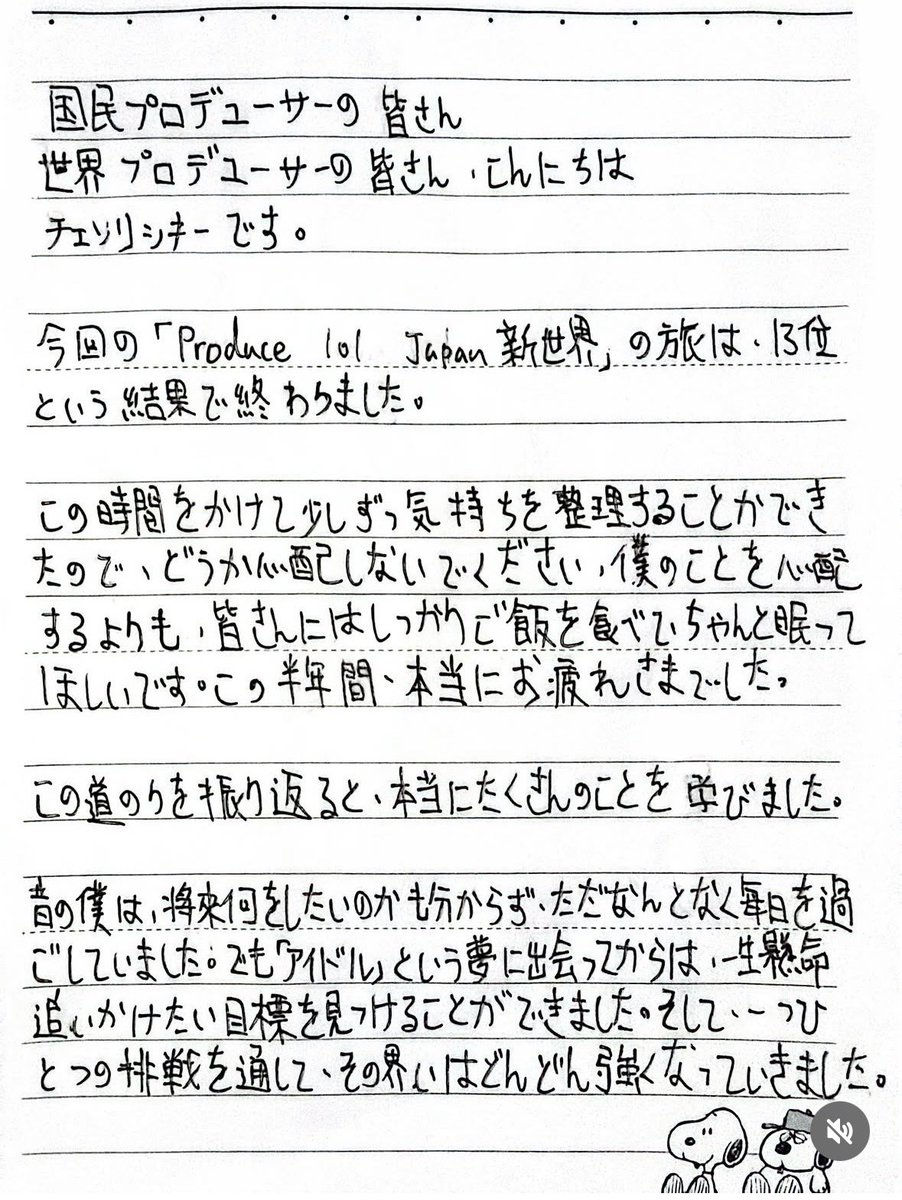 国民プロデューサーの 皆さん
世界プロデューサーの皆さん、こんにちは
チェソリシキーです。
今回の「Produce 101 Japan 新世界」の旅は、13位
という結果で終わりました。
この時間をかけて少しずつ気持ちを整理することができ
たので、どうか心配しないでください、僕のことを心配
するよりも、皆さんにはしっかりご飯を食べて、ちゃんと眠って
ほしいです。この半年間、本当にお疲れさまでした。
この道のりを振り返ると、本当にたくさんのことを学びました。
昔の僕は、将来何をしたいのかも分からず、ただなんとなく毎日を過
ごしていました。でも「アイドル」という夢に出会ってからは、一生懸命
追いかけたい目標を見つけることができました。そして、一つひ
とつの挑戦を通して、その思いはどんどん強くなっていきました。